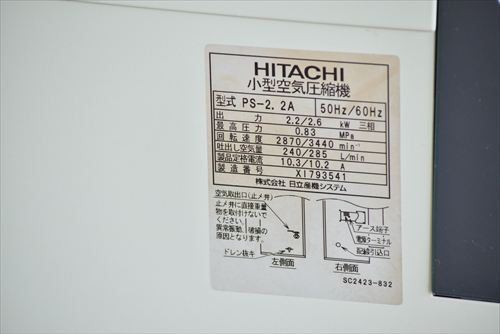 HITACHI
小型空気圧縮機
型式 PS-2.2A 50Hz/60Hz
出力 2.2/2.6 kW 三相
最高圧力 0.83 MPa
回転速度 2870/3440 min⁻¹
吐出し空気量 240/285 L/min
製品定格電流 10.3/10.2 A
製造番号 XI793541
株式会社 日立産機システム
空気取出口(止メ弁)
止メ弁に直接重量
物を取付けないで
ください。
異常振動、破損の
原因となります。
ドレン抜キ
左側面
アース端子
電源ターミナル
配線引込口
右側面
SC2423-832